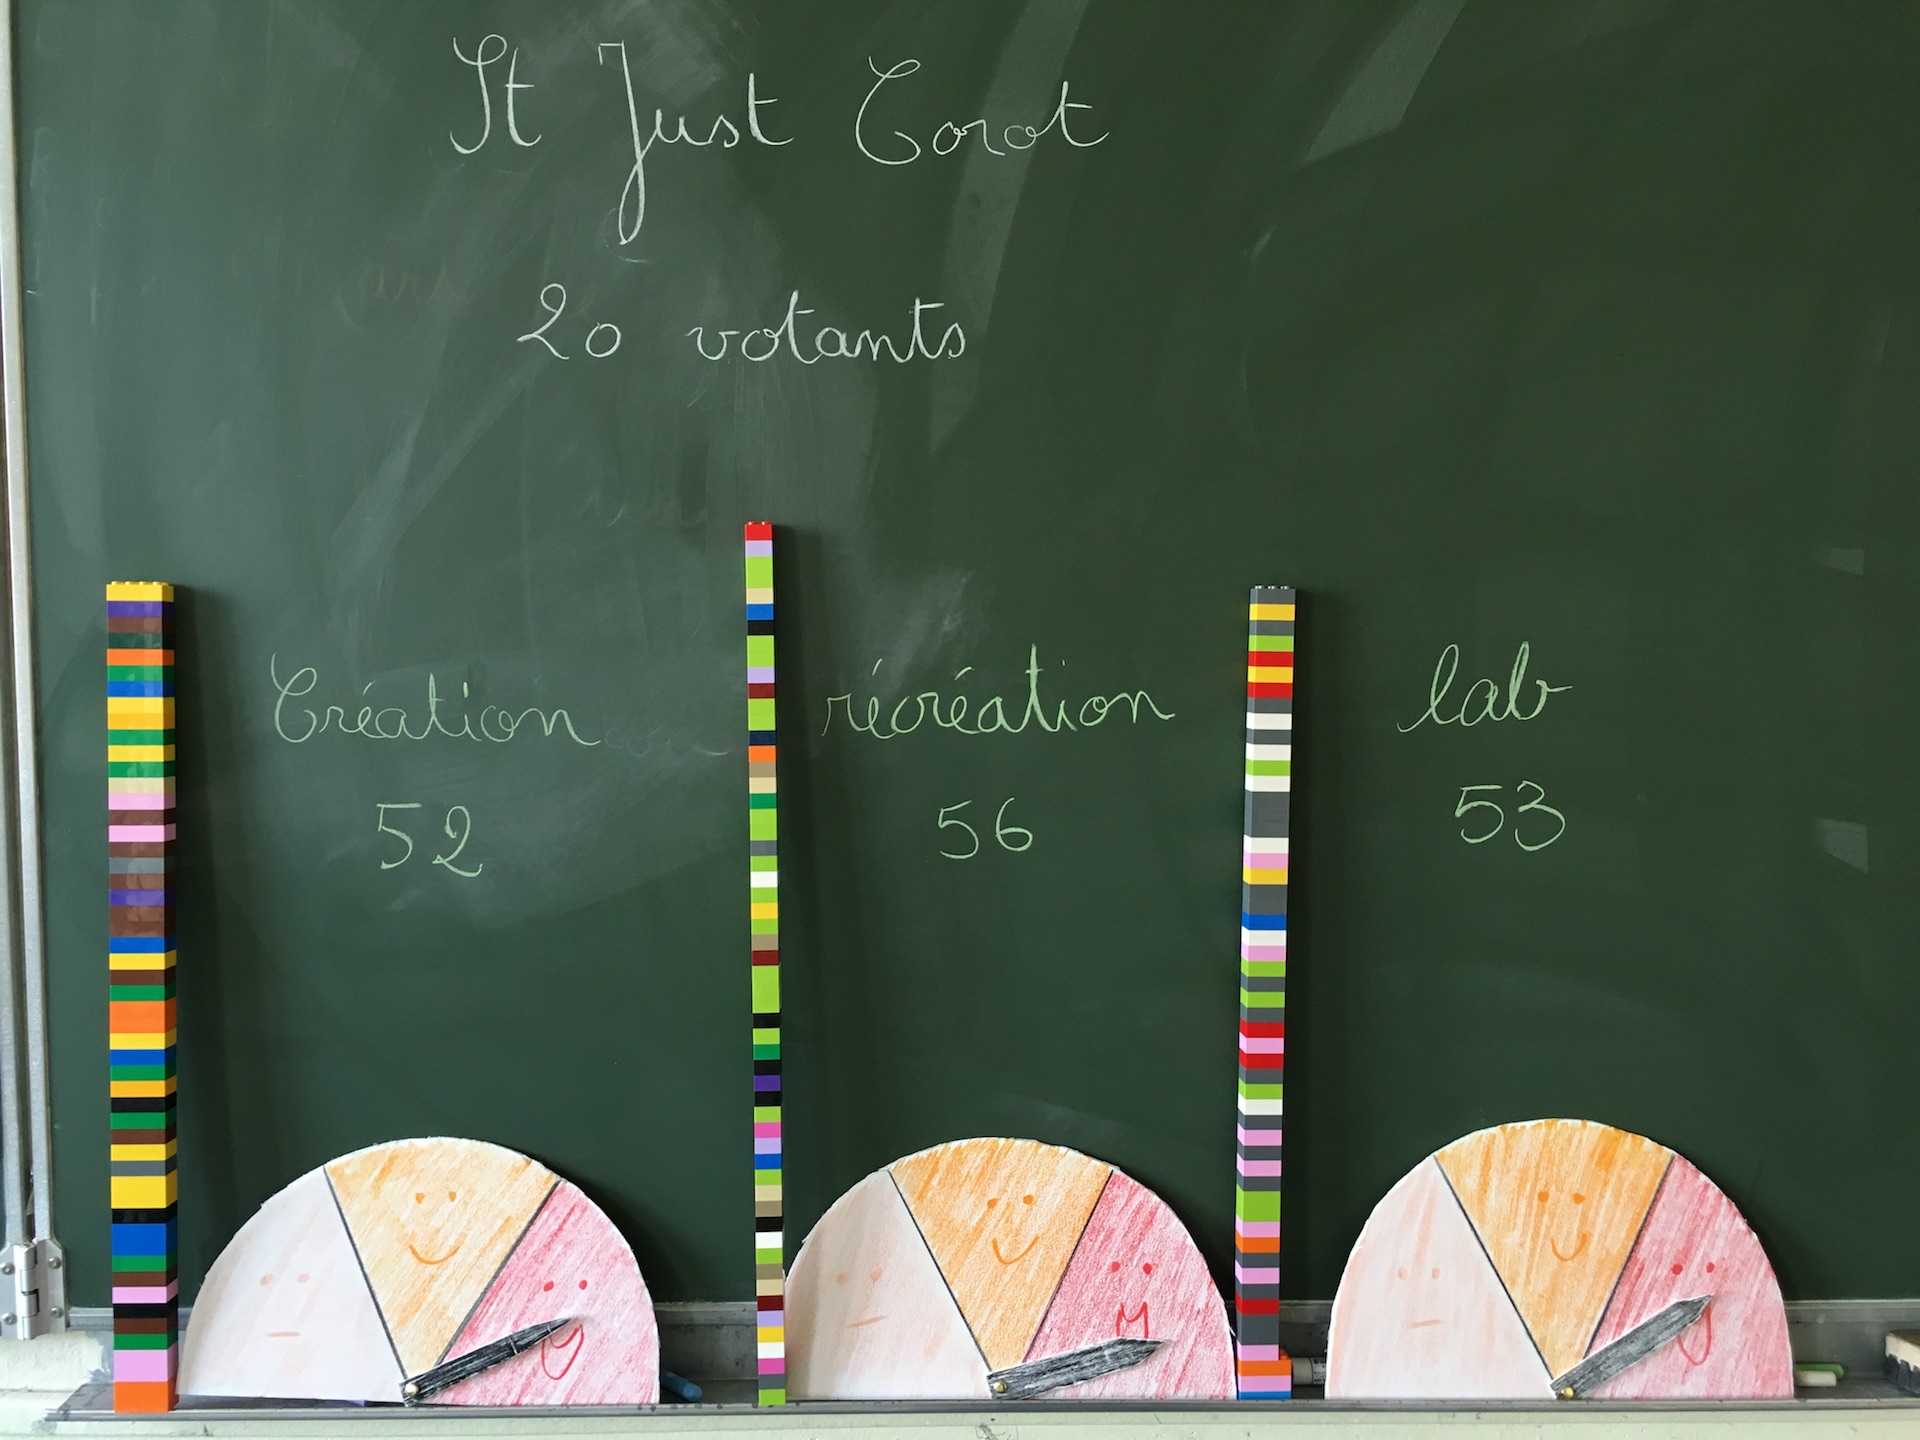 St Just Corot
20 votants
Création récréation lab
52 56 53